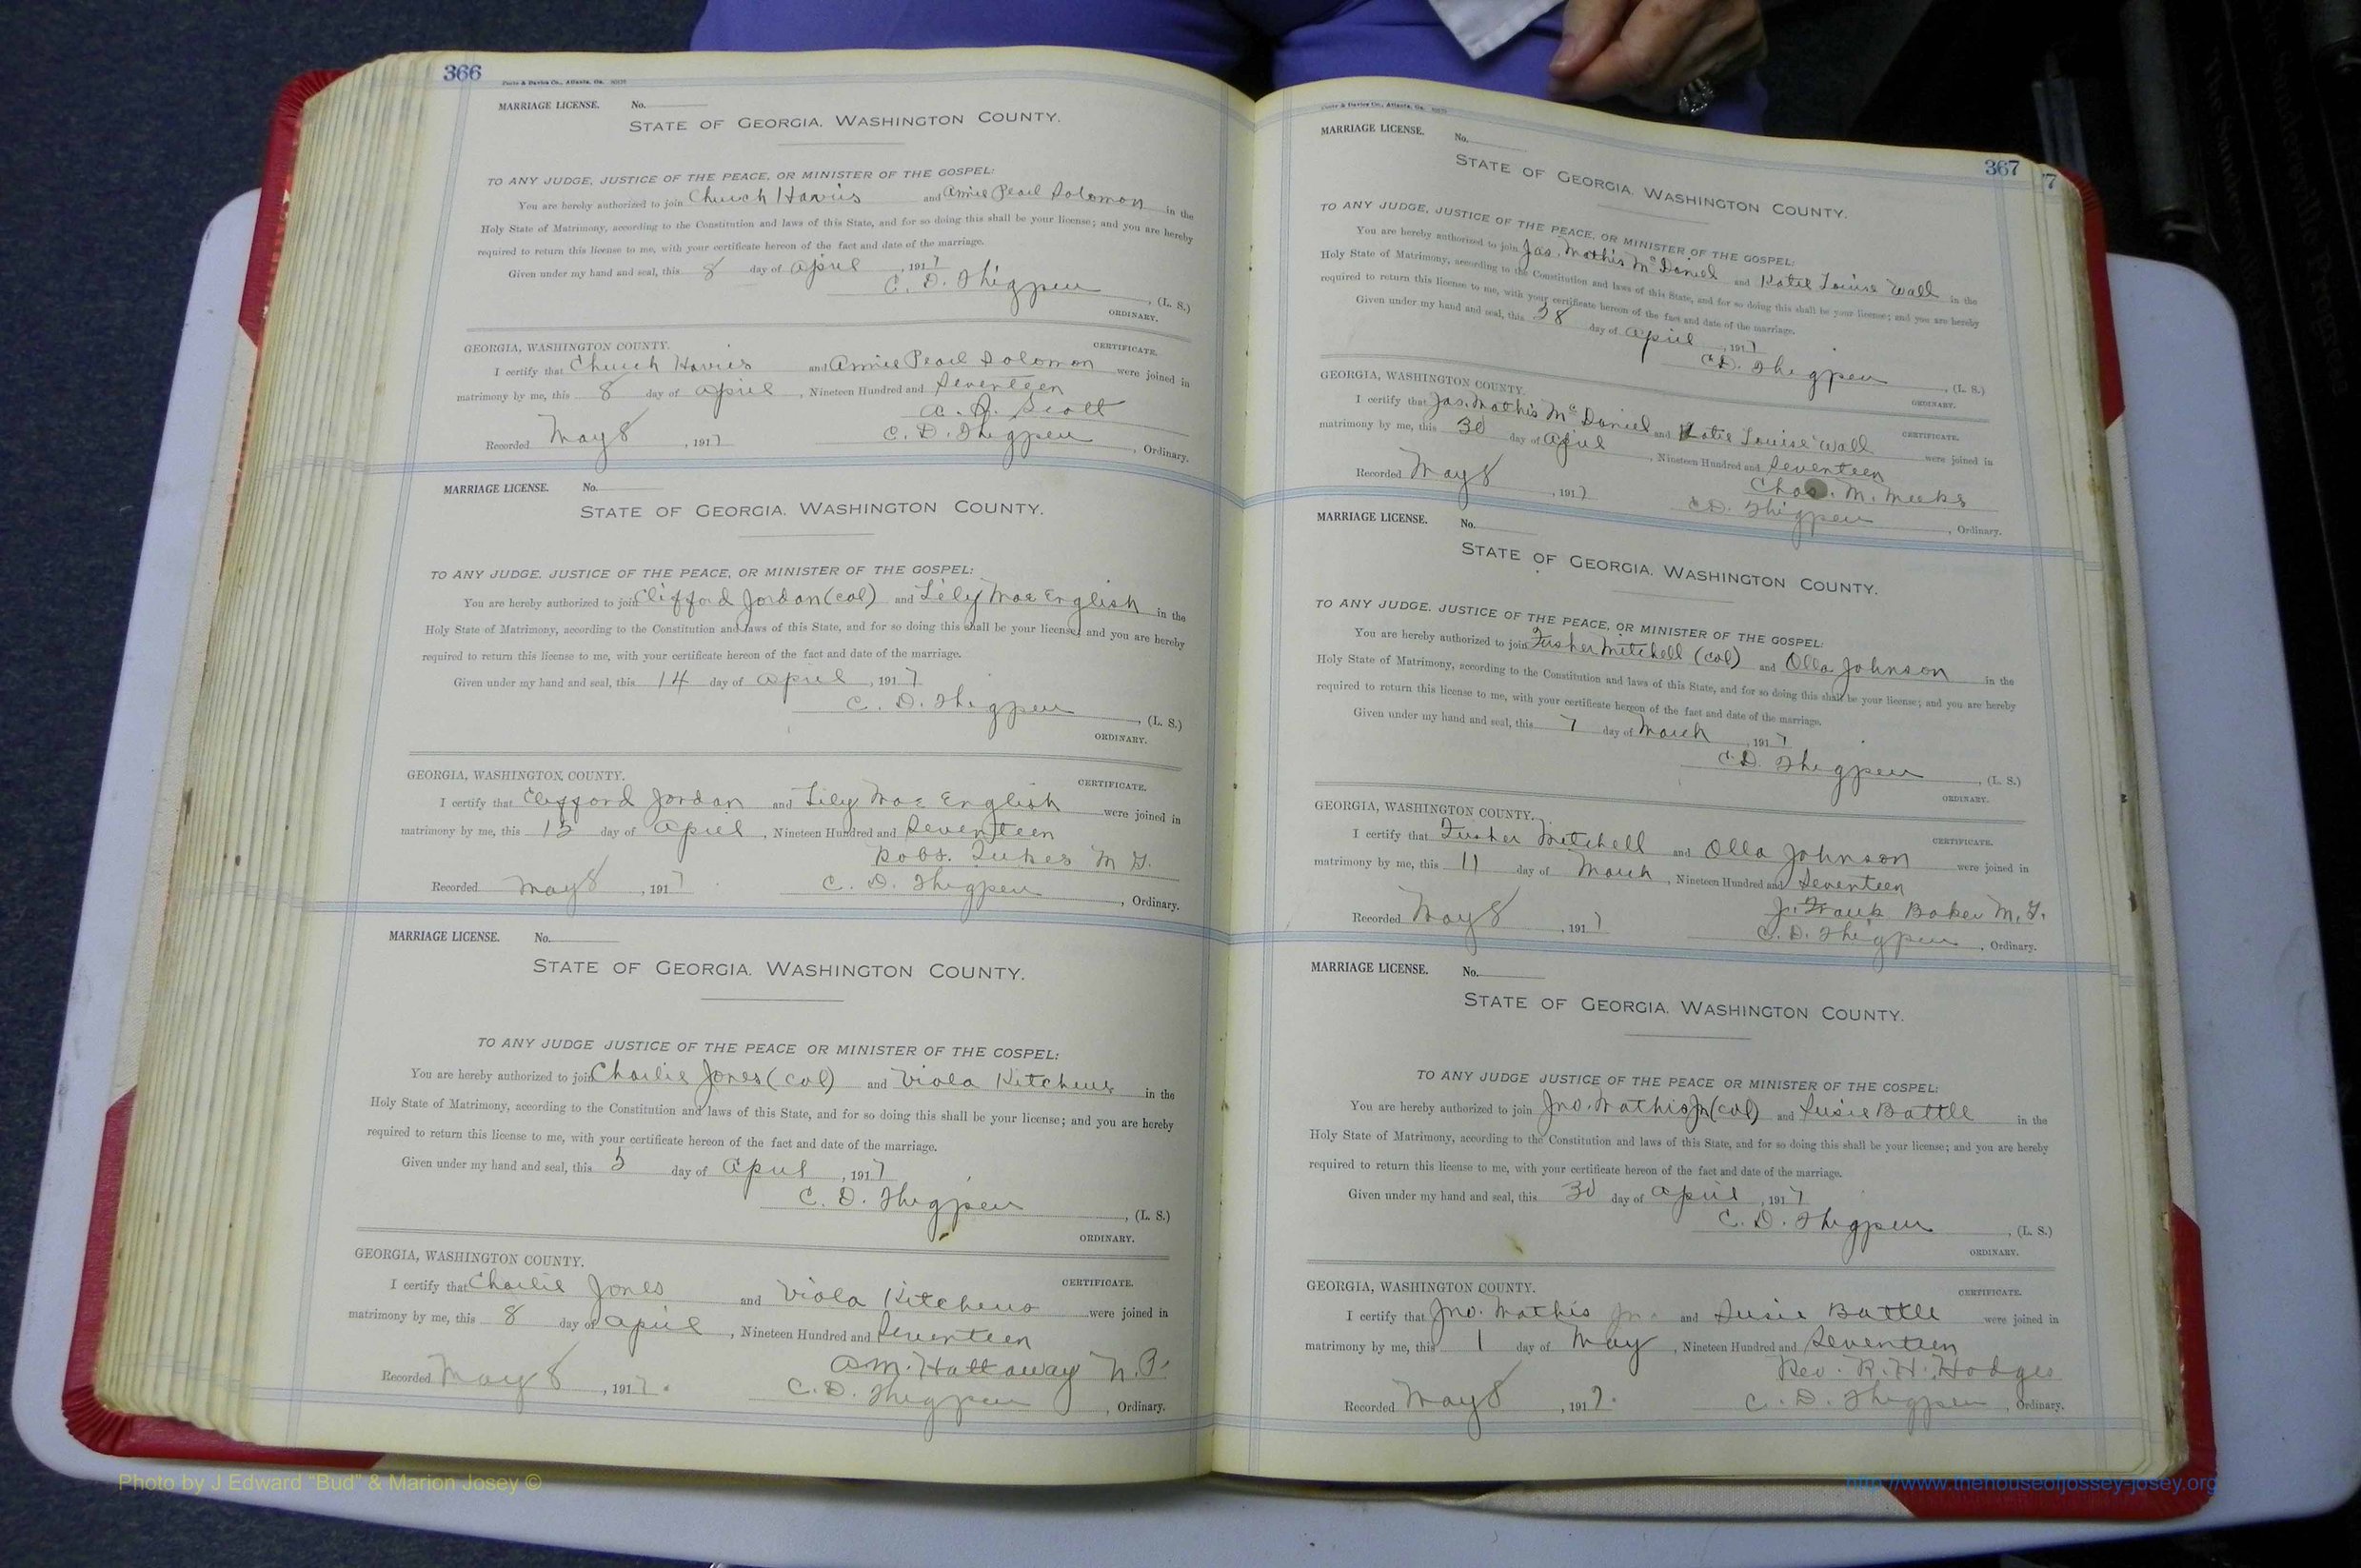 366
MARRIAGE LICENSE. No.
STATE OF GEORGIA, WASHINGTON COUNTY.
TO ANY JUDGE, JUSTICE OF THE PEACE, OR MINISTER OF THE GOSPEL:
You are hereby authorized to join Church Harris and Annie Pearl Solomon in the
Holy State of Matrimony, according to the Constitution and laws of this State, and for so doing this shall be your license; and you are hereby
required to return this license to me, with your certificate hereon of the fact and date of the marriage.
Given under my hand and seal, this 8 day of April, 1917
C. D. Thigpen, (L. S.)
ORDINARY.
GEORGIA, WASHINGTON COUNTY. CERTIFICATE.
I certify that Church Harris and Annie Pearl Solomon were joined in
matrimony by me, this 8 day of April, Nineteen Hundred and Seventeen
Scott
Recorded May 8, 1917 C. D. Thigpen, Ordinary.
MARRIAGE LICENSE. No.
STATE OF GEORGIA, WASHINGTON COUNTY.
TO ANY JUDGE, JUSTICE OF THE PEACE, OR MINISTER OF THE GOSPEL:
You are hereby authorized to join Clifford Jordan (col) and Lily Mae English in the
Holy State of Matrimony, according to the Constitution and laws of this State, and for so doing this shall be your license; and you are hereby
required to return this license to me, with your certificate hereon of the fact and date of the marriage.
Given under my hand and seal, this 14 day of April, 1917
C. D. Thigpen, (L. S.)
ORDINARY.
GEORGIA, WASHINGTON COUNTY. CERTIFICATE.
I certify that Clifford Jordan and Lily Mae English were joined in
matrimony by me, this 15 day of April, Nineteen Hundred and Seventeen
Robt. M. G.
Recorded May 8, 1917 C. D. Thigpen, Ordinary.
MARRIAGE LICENSE. No.
STATE OF GEORGIA, WASHINGTON COUNTY.
TO ANY JUDGE JUSTICE OF THE PEACE OR MINISTER OF THE GOSPEL:
You are hereby authorized to join Charlie Jones (col) and Viola Kitchens in the
Holy State of Matrimony, according to the Constitution and laws of this State, and for so doing this shall be your license; and you are hereby
required to return this license to me, with your certificate hereon of the fact and date of the marriage.
Given under my hand and seal, this 5 day of April, 1917
C. D. Thigpen, (L. S.)
ORDINARY.
GEORGIA, WASHINGTON COUNTY.
CERTIFICATE.
I certify that Charlie Jones and Viola Kitchens were joined in
matrimony by me, this 8 day of April, Nineteen Hundred and Seventeen
Hattaway N. P.
Recorded May 8, 1917. C. D. Thigpen, Ordinary.
367
MARRIAGE LICENSE. No.
STATE OF GEORGIA, WASHINGTON COUNTY.
TO ANY JUDGE, JUSTICE OF THE PEACE, OR MINISTER OF THE GOSPEL:
You are hereby authorized to join Jas. Mathis McDaniel and Katie Louise Wall in the
Holy State of Matrimony, according to the Constitution and laws of this State, and for so doing this shall be your license; and you are hereby
required to return this license to me, with your certificate hereon of the fact and date of the marriage.
Given under my hand and seal, this 28 day of April, 1917
C. D. Thigpen, (L. S.)
ORDINARY.
GEORGIA, WASHINGTON COUNTY. CERTIFICATE.
I certify that Jas. Mathis McDaniel and Katie Louise Wall were joined in
matrimony by me, this 30 day of April, Nineteen Hundred and Seventeen
Chas. M. Meeks
Recorded May 8, 1917 C. D. Thigpen, Ordinary.
MARRIAGE LICENSE. No.
STATE OF GEORGIA, WASHINGTON COUNTY.
TO ANY JUDGE, JUSTICE OF THE PEACE, OR MINISTER OF THE GOSPEL:
You are hereby authorized to join Fisher Mitchell (col) and Olla Johnson in the
Holy State of Matrimony, according to the Constitution and laws of this State, and for so doing this shall be your license; and you are hereby
required to return this license to me, with your certificate hereon of the fact and date of the marriage.
Given under my hand and seal, this 7 day of March, 1917
C. D. Thigpen, (L. S.)
ORDINARY.
GEORGIA, WASHINGTON COUNTY. CERTIFICATE.
I certify that Fisher Mitchell and Olla Johnson were joined in
matrimony by me, this 11 day of March, Nineteen Hundred and Seventeen
J. Frank Baker M. G.
Recorded May 8, 1917 C. D. Thigpen, Ordinary.
MARRIAGE LICENSE. No.
STATE OF GEORGIA, WASHINGTON COUNTY.
TO ANY JUDGE JUSTICE OF THE PEACE OR MINISTER OF THE GOSPEL:
You are hereby authorized to join Jno. Mathis Jr (col) and Susie Battle in the
Holy State of Matrimony, according to the Constitution and laws of this State, and for so doing this shall be your license; and you are hereby
required to return this license to me, with your certificate hereon of the fact and date of the marriage.
Given under my hand and seal, this 30 day of April, 1917
C. D. Thigpen, (L. S.)
ORDINARY.
GEORGIA, WASHINGTON COUNTY. CERTIFICATE.
I certify that Jno. Mathis Jr. and Susie Battle were joined in
matrimony by me, this 1 day of May, Nineteen Hundred and Seventeen
Rev. R. H. Hodges
Recorded May 8, 1917. C. D. Thigpen, Ordinary.
Photo by J Edward "Bud" & Marion Josey ©
http://www.thehouseofjossey-josey.org